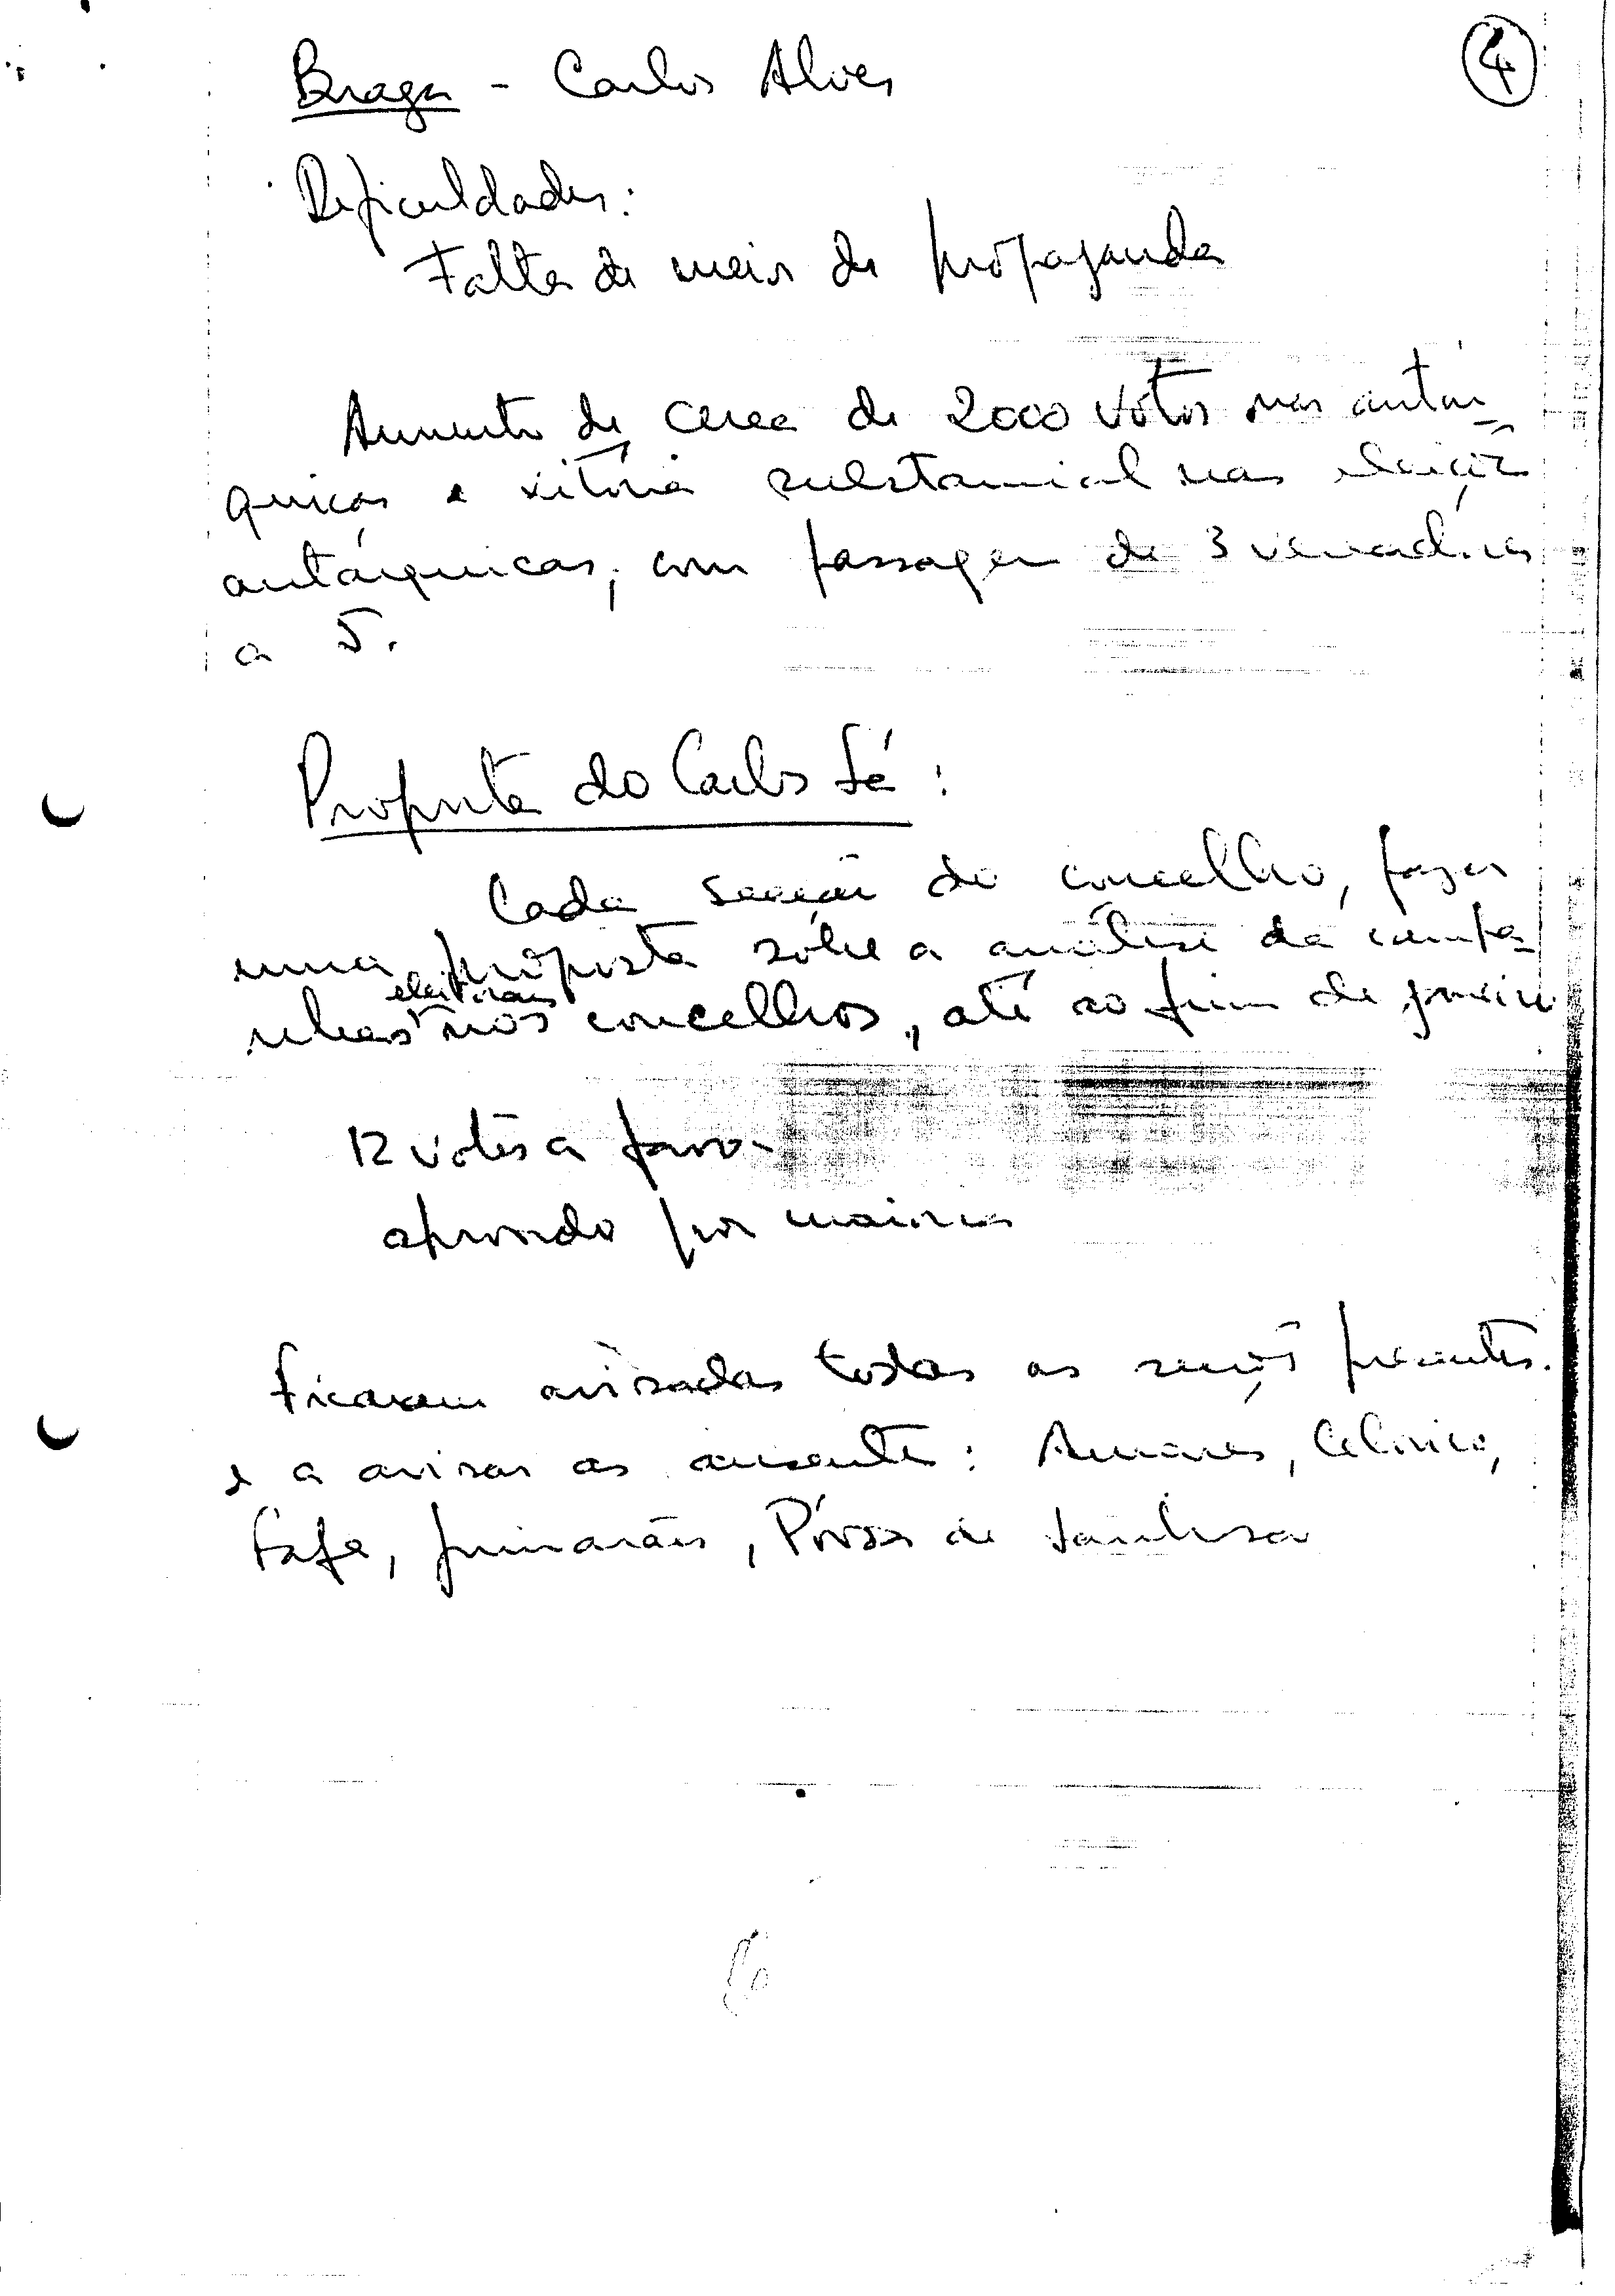 4
Braga - Carlos Alves
Dificuldades:
Falta de meios de propaganda
Aumento de cerca de 2000 votos nas autár-
quicas e vitória substancial nas eleições
autárquicas, com passagem de 3 vereadores
a 5.
Proposta do Carlos Sá:
Cada secção do concelho, fazer
uma proposta sôbre a análise da campa-
eleitorais
nhas nos concelhos, até ao fim de janeiro
12 votos a favor
aprovado por maioria
Ficaram avisadas todas as secções presentes.
e a avisar as ausentes: Amares, Celorico,
Fafe, Guimarães, Póvoa de Lanhoso